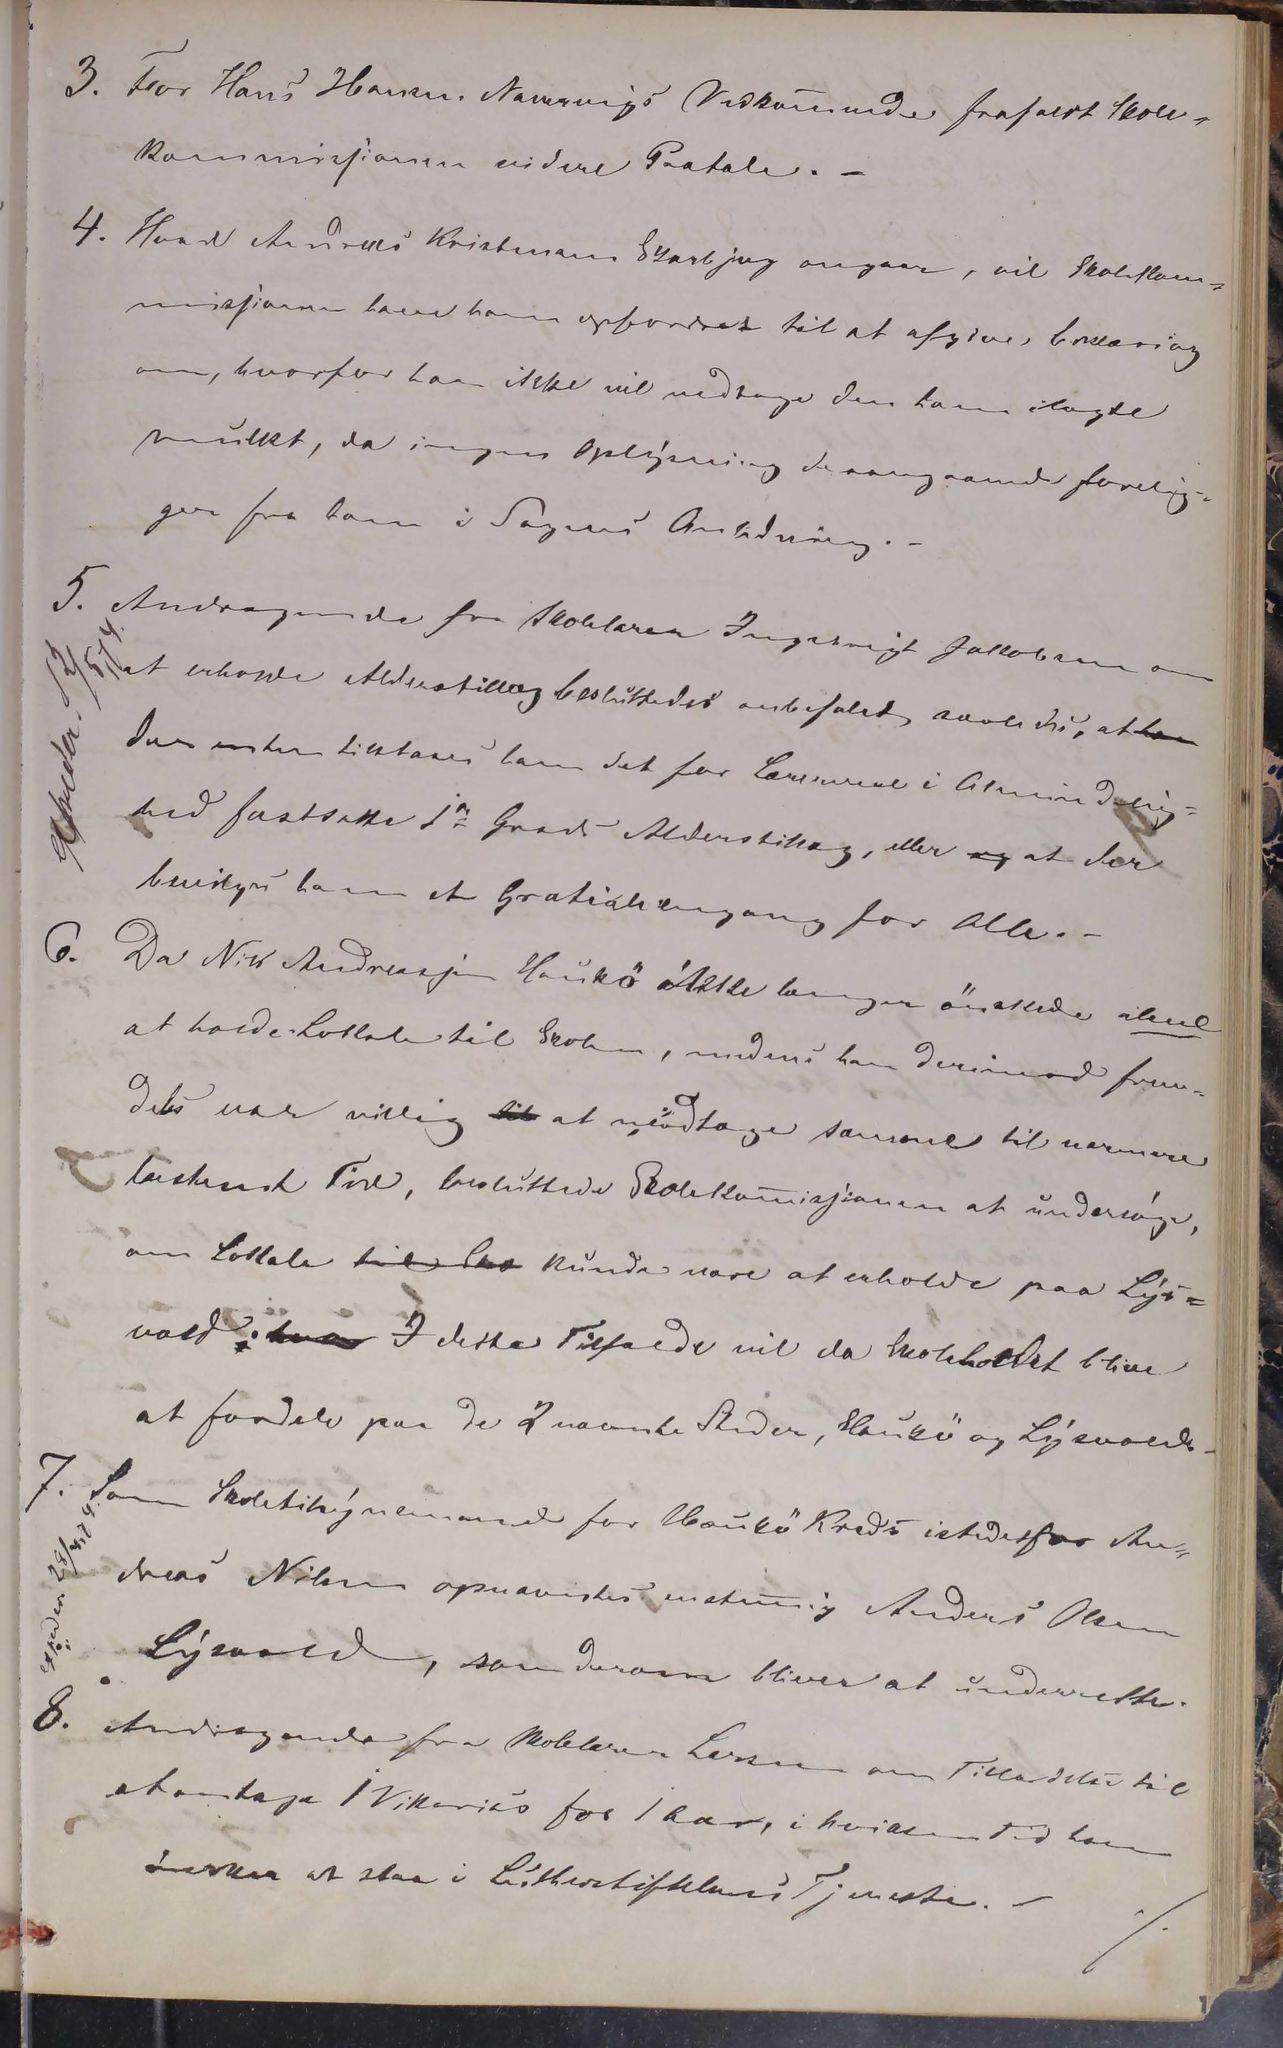 3. For Hans Hansen Navervigs Vedkommende frafaldt Skole-
kommissionen videre Paatale. -
4. Hvad Andreas Kristensen angaar, vil Skolekom-
missionen have ham opfordret til at afgive Erklæring
om, hvorfor han ikke vil vedtage den ham ilagte
mulkt, da ingen Oplysning desangaaende forelig-
ger fra ham i Sagens Anledning. -
5. Andragende fra Skolelærer Ingebrigt Jakobsen om
at erholde Alderstillæg besluttedes anbefalet saaledes, at han
der enten tilstaaes ham det for Lærerne i Almindelig-
hed fastsatte 1ste Grads Alderstillæg, eller og at der
bevilges ham et Gratiale engang for Alle. -
6. Da Nils Andreassen Haukö ikke længer önskede alene
at holde Lokale til Skolen, medens han derimod frem-
deles var villig til at modtage samme til nærmere
bestemt Tid, besluttede Skolekommissionen at undersöge,
om Lokale til Sko kunde være at erholde paa Lys-
vold. hvor I dette Tilfælde vil da Skoleholdet blive
at fordele paa de 2 nævnte Steder, Haukö og Lysvold. -
7. Som Skoletilsynsmand for Haukö Kreds istedetfor An-
dreas Nilsen opnævntes enstemmig Anders Olsen
Lysvold, som derom bliver at underrette.
8. Andragende fra Skolelærer Larsen om Tilladelse til
at antage 1 Vikarius for 1 Aar, i hvilken Tid han
önsker at staa i Lutherstiftelsens Tjeneste. -
./.
Exped. 12/5 74.
exped. 28/4 74.